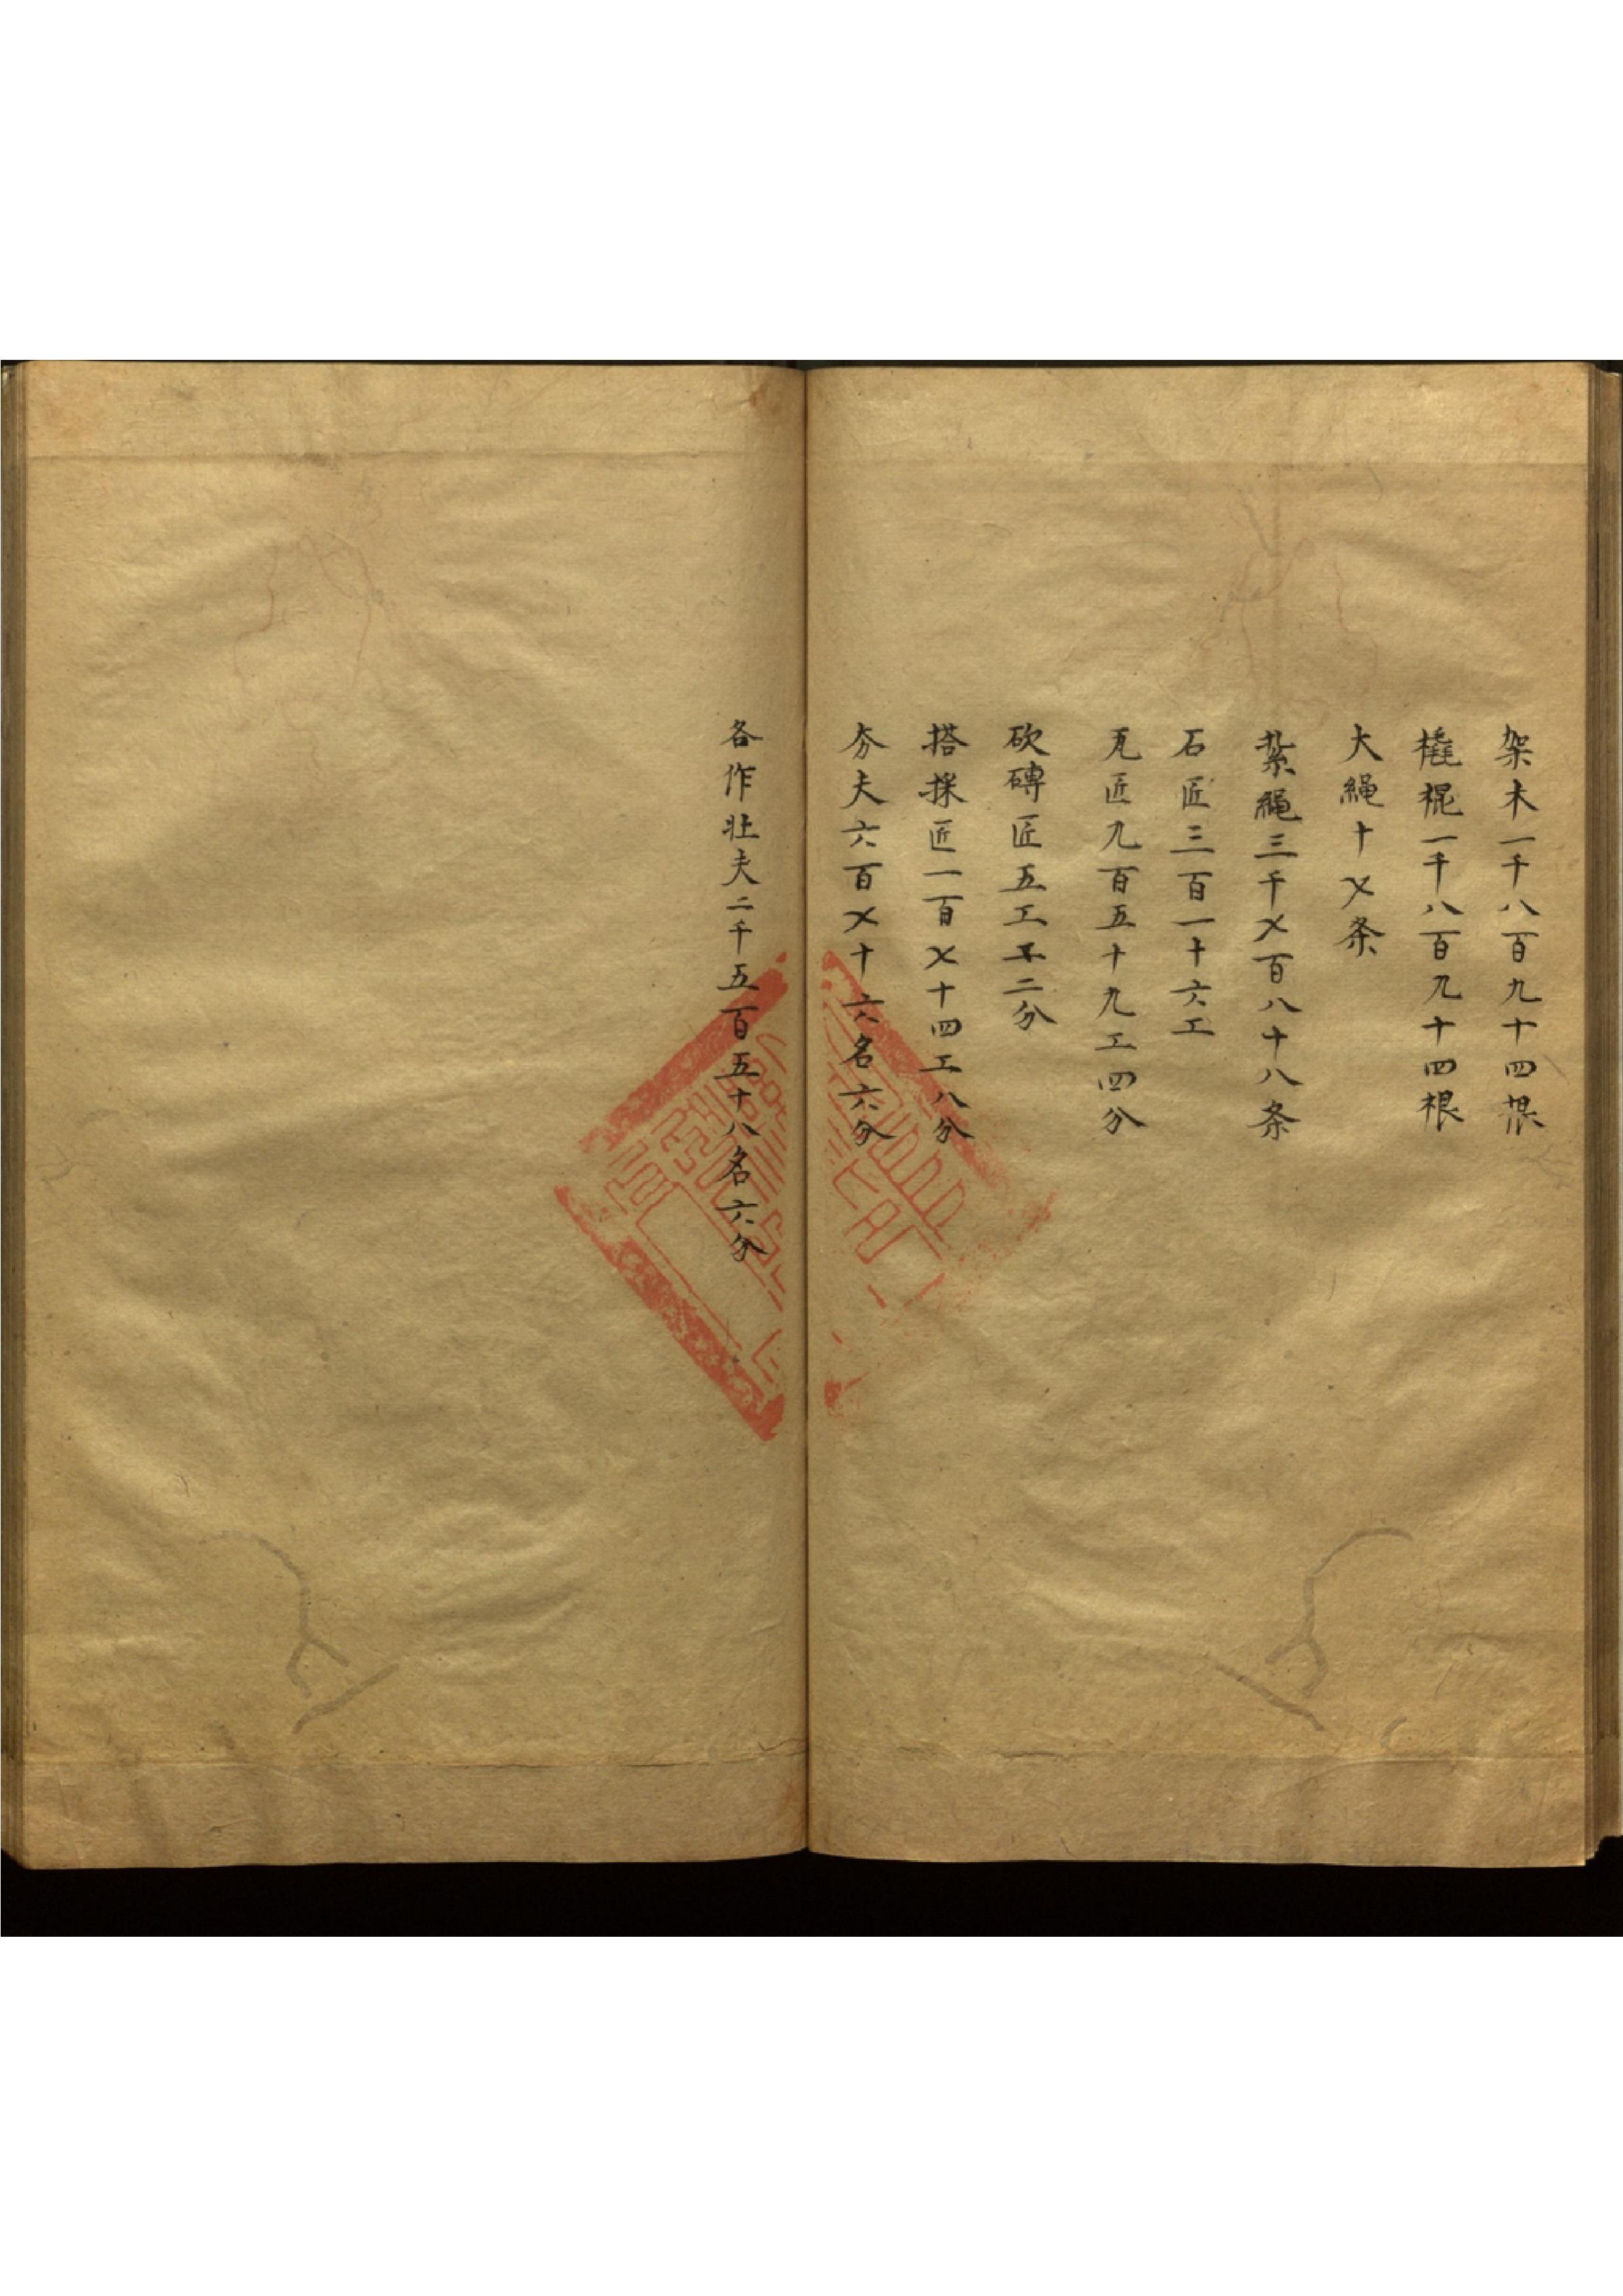 架木一千八百九十四根
橇棍一千八百九十四根
大繩十㐅条
紮繩三千㐅百八十八条
石匠三百一十六工
瓦匠九百五十九工四分
砍磚匠五工二分
搭採匠一百㐅十四工八分
夯夫六百㐅十六名六分
各作壯夫二千五百五十八名六分